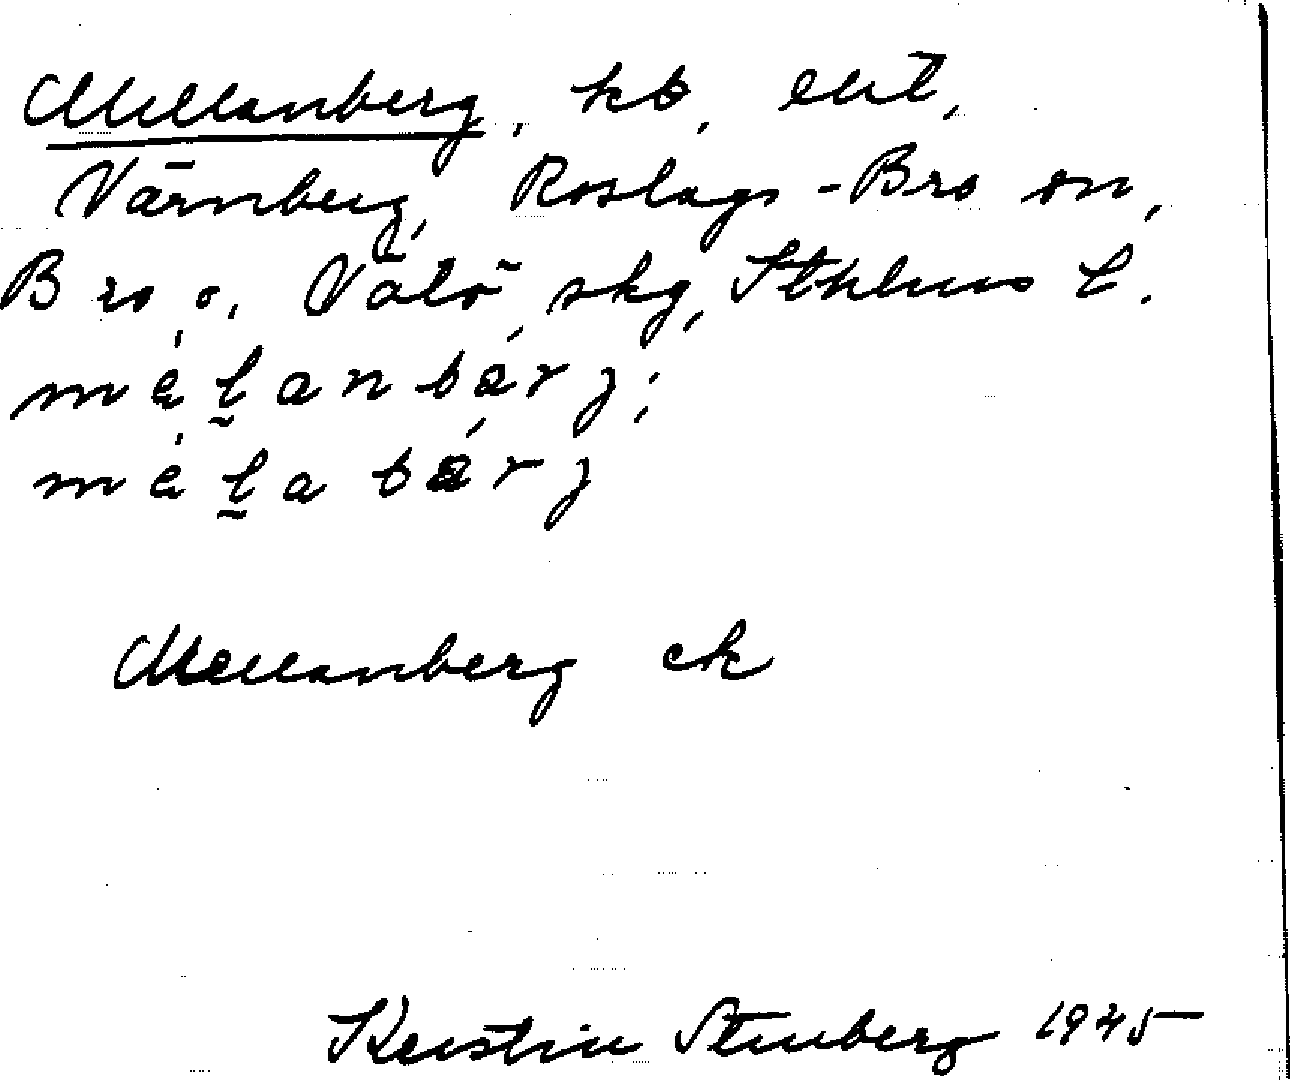 Mellanberg, kb, enl.
Värnberg, Roslags-Bro sn,
Bro o. Vätö skg, Sthlms l.
mèḻanbá̀rj;
mèḻabá̀rj
Mellanberg ek
Kerstin Stenberg 1945